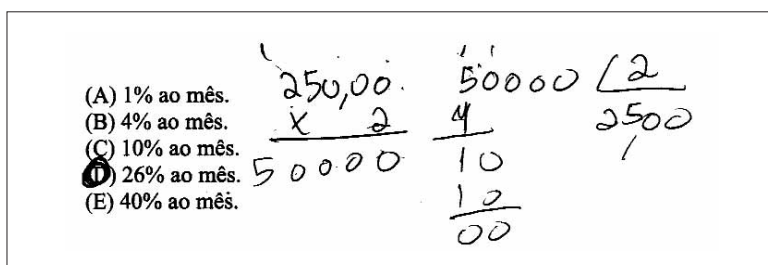 (A) 1% ao mês.
(B) 4% ao mês.
(C) 10% ao mês.
(D) 26% ao mês.
(E) 40% ao mês.
250,00
x 2
50000
50000 2
4 2500
10
10
00